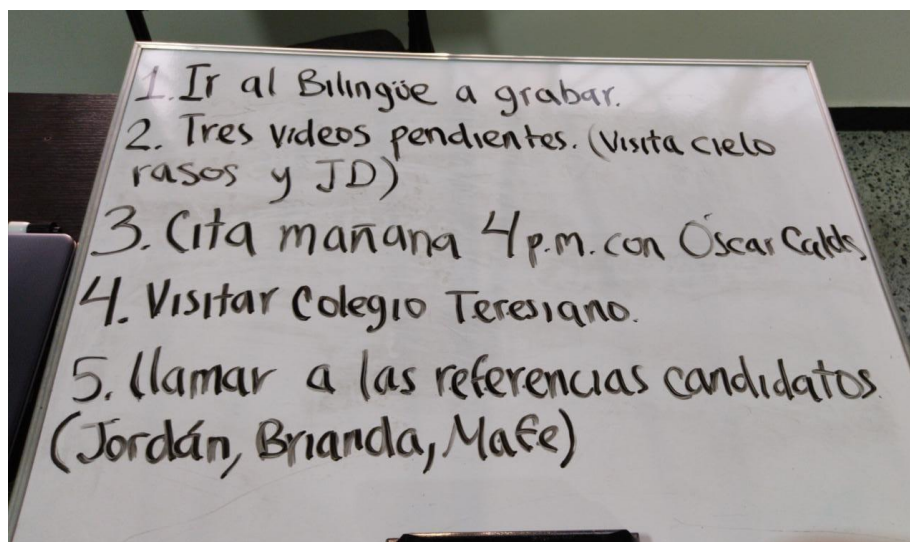 1. Ir al Bilingüe a grabar.
2. Tres videos pendientes. (Visita cielo
rasos y JD)
3. Cita mañana 4 p.m. con Óscar Calds
4. Visitar Colegio Teresiano.
5. llamar a las referencias candidatos.
(Jordán, Brianda, Mafe)